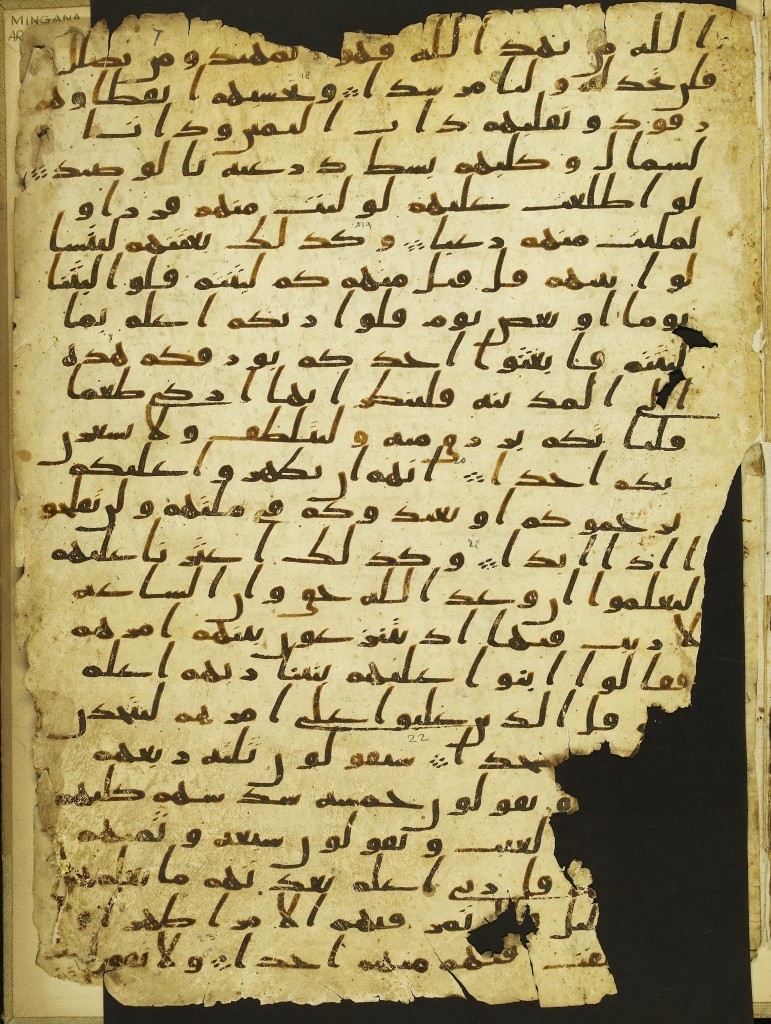 MINGANA
AR
7
الله من يهد الله فهو المهتد ومن يضلل
فلن تجد له وليا مرشدا 18 وتحسبهم ايقظا وهم
رقود ونقلبهم ذات اليمين وذات ا
لشمال وكلبهم بسط ذرعيه بالوصيد
لو اطلعت عليهم لوليت منهم فررا و
لملئت منهم رعبا 19 وكذلك بعثنهم ليتسا
لوا بينهم قل قيل منهم كم لبثتم قلوا لبثنا
يوما او بعض يوم قلوا ربكم اعلم بما
لبثتم فابعثوا احدكم بورقكم هذه
الى المدينة فلينظر ايها ازكى طعما
فلياتكم برزق منه وليتلطف ولا يشعرن
بكم احدا 20 انهم ان يظهروا عليكم
يرجموكم او يعيدوكم في ملتهم ولن تفلحو
ا اذا ابدا 21 وكذلك اعثرنا عليهم
ليعلموا ان وعد الله حق وان الساعة
لا ريب فيها اذ يتنزعون بينهم امرهم
فقالوا ابنوا عليهم بنينا ربهم اعلم
قل الذين غلبوا على امرهم لنتخذن
سجدا 22 سيقولون ثلثة ربعهم
و يقولون خمسة سدسهم كلبهم
لغيب ويقولون سبعة وثمنهم
قل ربي اعلم بعدتهم ما يعلمهم
ليل فلا تمر فيهم الا مرا ظهرا
فت فيهم منهم احدا ولا تقولن